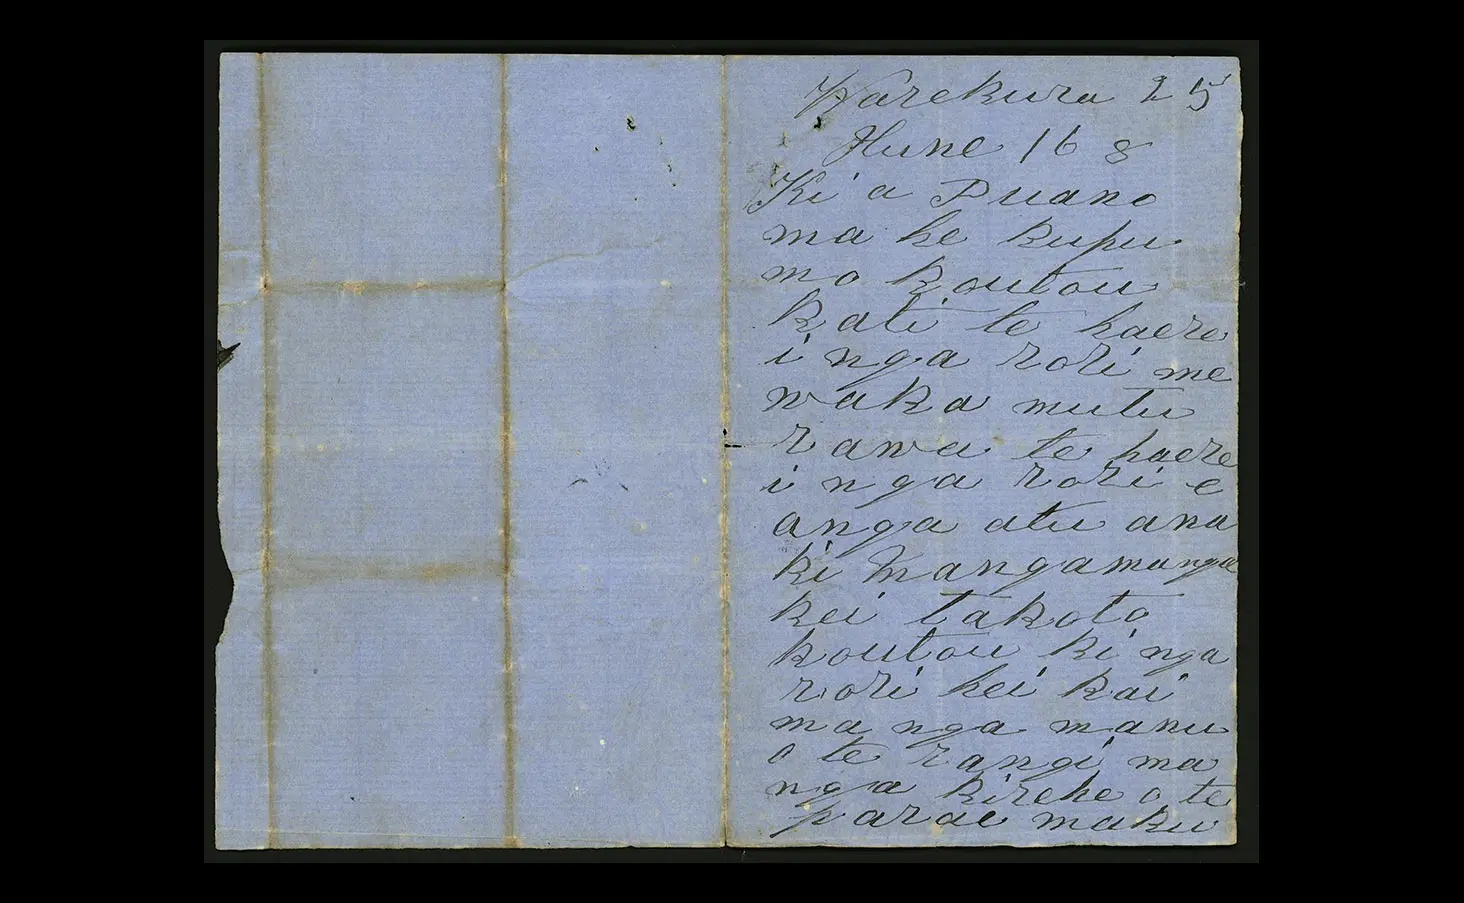 Warekura 25
Hune 16 8
Ki a Puano
ma he kupu
mo koutou
Kati te haere
i nga rori me
waka mutu
rawa te haere
i nga rori e
anga atu ana
ki Mangamanga
kei takoto
koutou ki nga
rori hei kai
ma nga manu
o te rangi ma
nga kirehe o te
parae maku